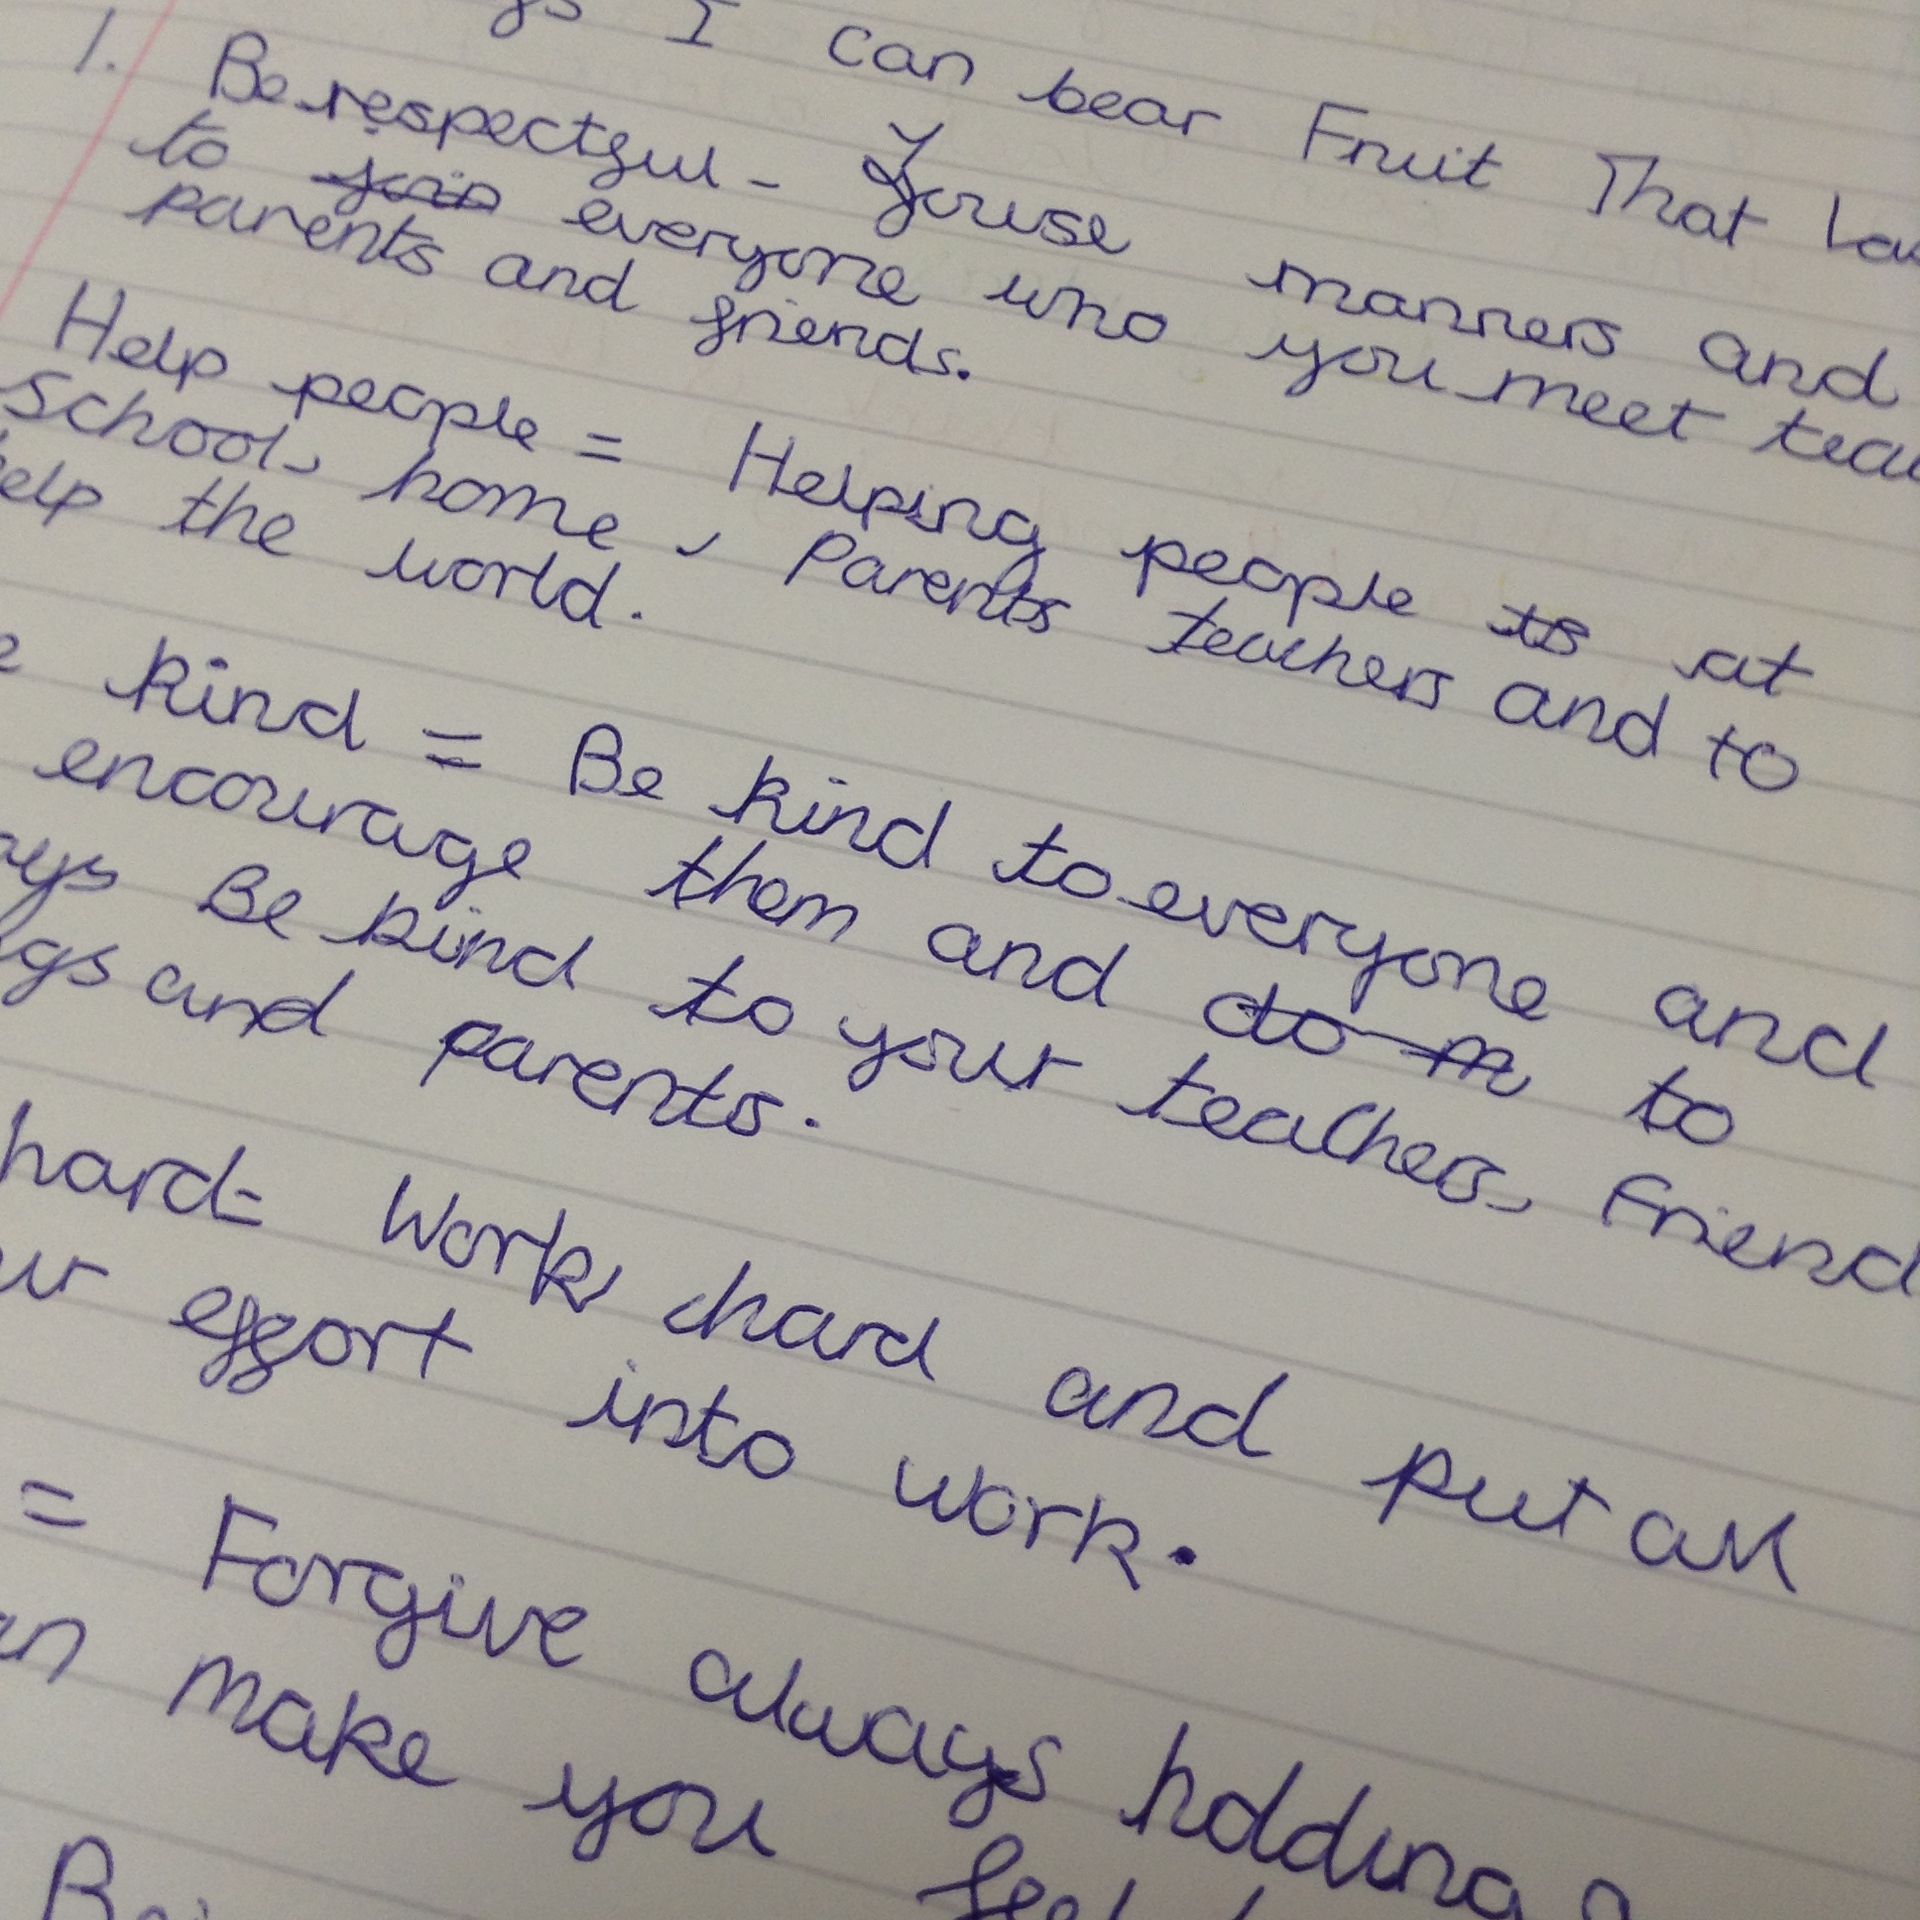 I can bear Fruit That
1. Be respectful - Youse manners and
to everyone who you meet
parents and friends.
Help people = Helping people at
School, home, Parents teachers and to
help the world.
kind = Be kind to everyone and
encourage them and to
Be kind to your teachers, Friend
and parents.
hard = Work hard and put all
effort into work.
= Forgive always holding
make you